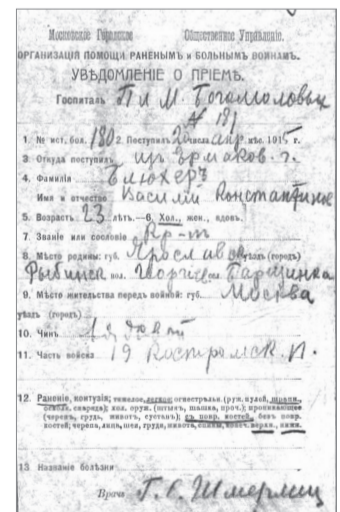 Московское Городское Общественное Управленіе.
ОРГАНИЗАЦІЯ ПОМОЩИ РАНЕНЫМЪ и БОЛЬНЫМЪ ВОИНАМЪ.
УВѢДОМЛЕНІЕ О ПРІЕМѢ.
Госпиталь П и М. Богомоловы
№ 181
1. № ист. бол. 180 2. Поступилъ числа апр. мѣс. 1915 г.
3. Откуда поступилъ изъ Ермаков. г.
4. Фамилія Блюхеръ
Имя и отчество Василій Константинов
5. Возрастъ 23 лѣтъ.—6. Хол., жен., вдовъ.
7. Званіе или сословіе Кр-нъ
8. Мѣсто родины: губ. Ярославс уѣздъ (городъ)
Рыбинск вол. Георгіев сел. Барщинка
9. Мѣсто жительства передъ войной: губ. Москва
уѣздъ (городъ)
10. Чинъ Рядовой
11. Часть войска 19 Костромск. п.
12. Раненіе, контузія; тяжелое, легкое; огнестрѣльн. (руж. пулей, шрапн.,
оскол. снаряда); хол. оруж. (штыкъ, шашка, проч.); проникающее
(черепъ, грудь, животъ, суставъ); съ повр. костей, безъ повр.
костей; черепа, лица, шеи, груди, живота, спины, конеч. верхн., нижн.
13 Названіе болѣзни
Врачъ Г. С.